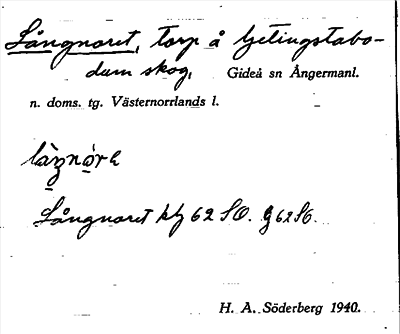 Långnoret, torp å Getingstabo-
dum skog, Gideå sn Ångermanl.
n. doms. tg. Västernorrlands l.
Långnoret 62 SO.
H. A. Söderberg 1940.